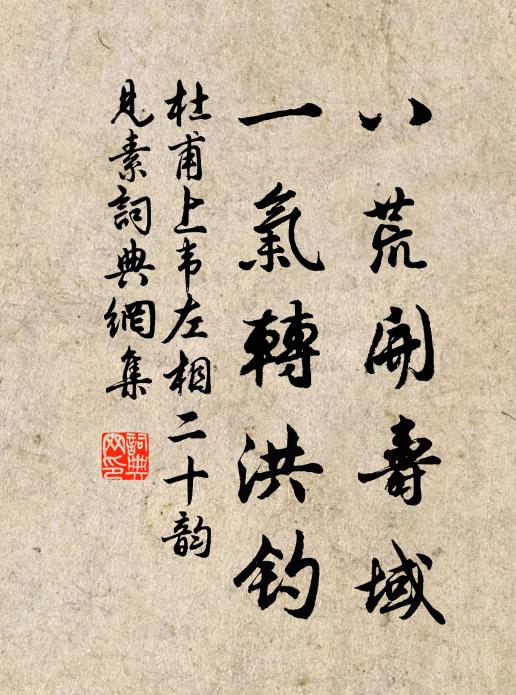 八荒開壽域
一氣轉洪鈞
杜甫上韦左相二十韵
見素詞典網集
詞典
网印